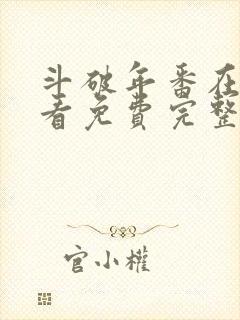 斗破年番在
看免費完整
官小權